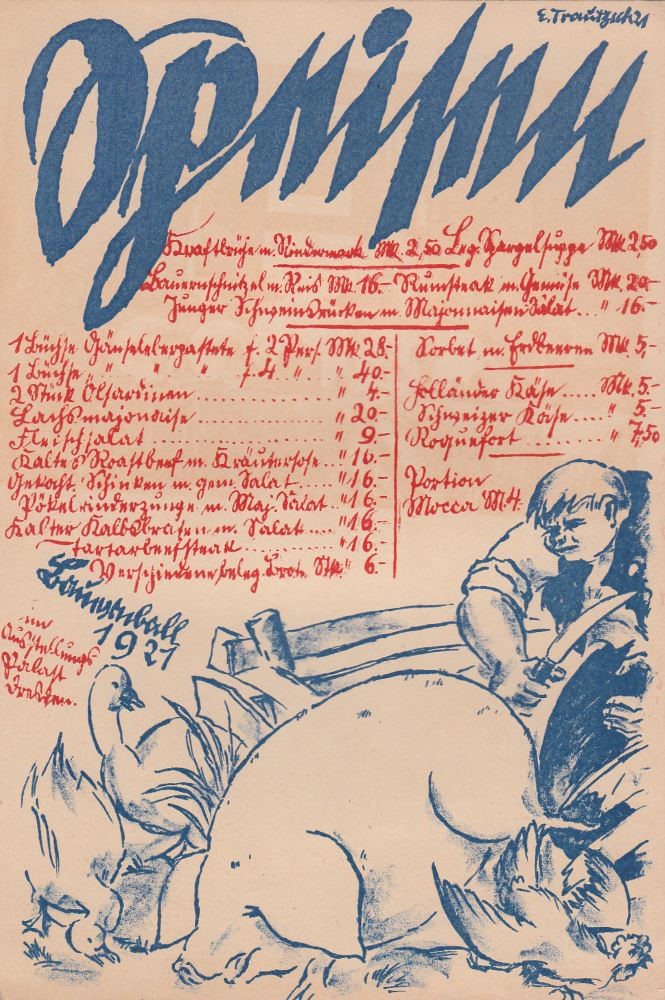 E. Trautzsch 21
Speisen
Kraftbrühe m. Rindermark Mk. 2,50 Leg. Spargelsuppe Mk 2,50
Bauernschnitzel m. Reis Mk 16.- Rumsteak m. Gemüse Mk. 20-
Junger Schweinsrücken m. Majonnaisen Salat... " 16.-
1 Büchse Gänseleberpastete f. 2 Pers. Mk 28.-
1 Büchse " " " f. 4 " " 40.-
2 Stück Ölsardinen .......... " 4.-
Lachsmajonaise .......... " 20.-
Fleischsalat .......... " 9.-
Kaltes Roastbeef m. Kräutersose.. " 16.-
Gekocht. Schinken m. gem. Salat.... " 16.-
Pökelrinderzunge m. Maj. Salat.. " 16.-
Kalter Kalbsbraten m. Salat.... " 16.-
Tartarbeefsteak .......... " 16.-
Verschiedene beleg. Brote Stk. " 6.-
Sorbet m. Erdbeeren Mk. 5,-
Holländer Käse ..... Mk. 5.-
Schweizer Käse .... " 5.-
Roquefort ....... " 7,50
Portion
Mocca M 4.
Bauernball
1921
im
Ausstellungs
Palast
Dresden.